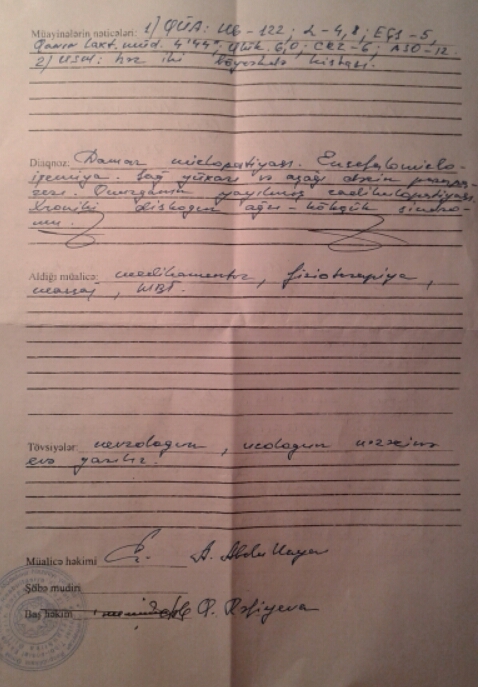 Müayinələrin nəticələri: 1) QÜA: Hb-122; L-4,8; EÇS-5,
Qanın laxt. müd. 4'44"; qlük. 6,0; CRZ-6; ASO-12.
2) USM: hər iki böyrəkdə kistası.
Diaqnoz: Damar mielopatiyası. Ensefalomielo-
işemiya. Sağ yuxarı və aşağı ətrafın parapa-
rezi. Onurğanın yayılmış radikulopatiyası.
Xroniki diskogen ağrı-kökçük sindro-
mu.
Aldığı müalicə: medikamentoz, fizioterapiya,
masaj, MBT.
Tövsiyələr: nevroloqun, uroloqun nəzarəti
evə yazılır.
Müalicə həkimi A.
Şöbə müdiri
Baş həkim R. Rəfiyeva